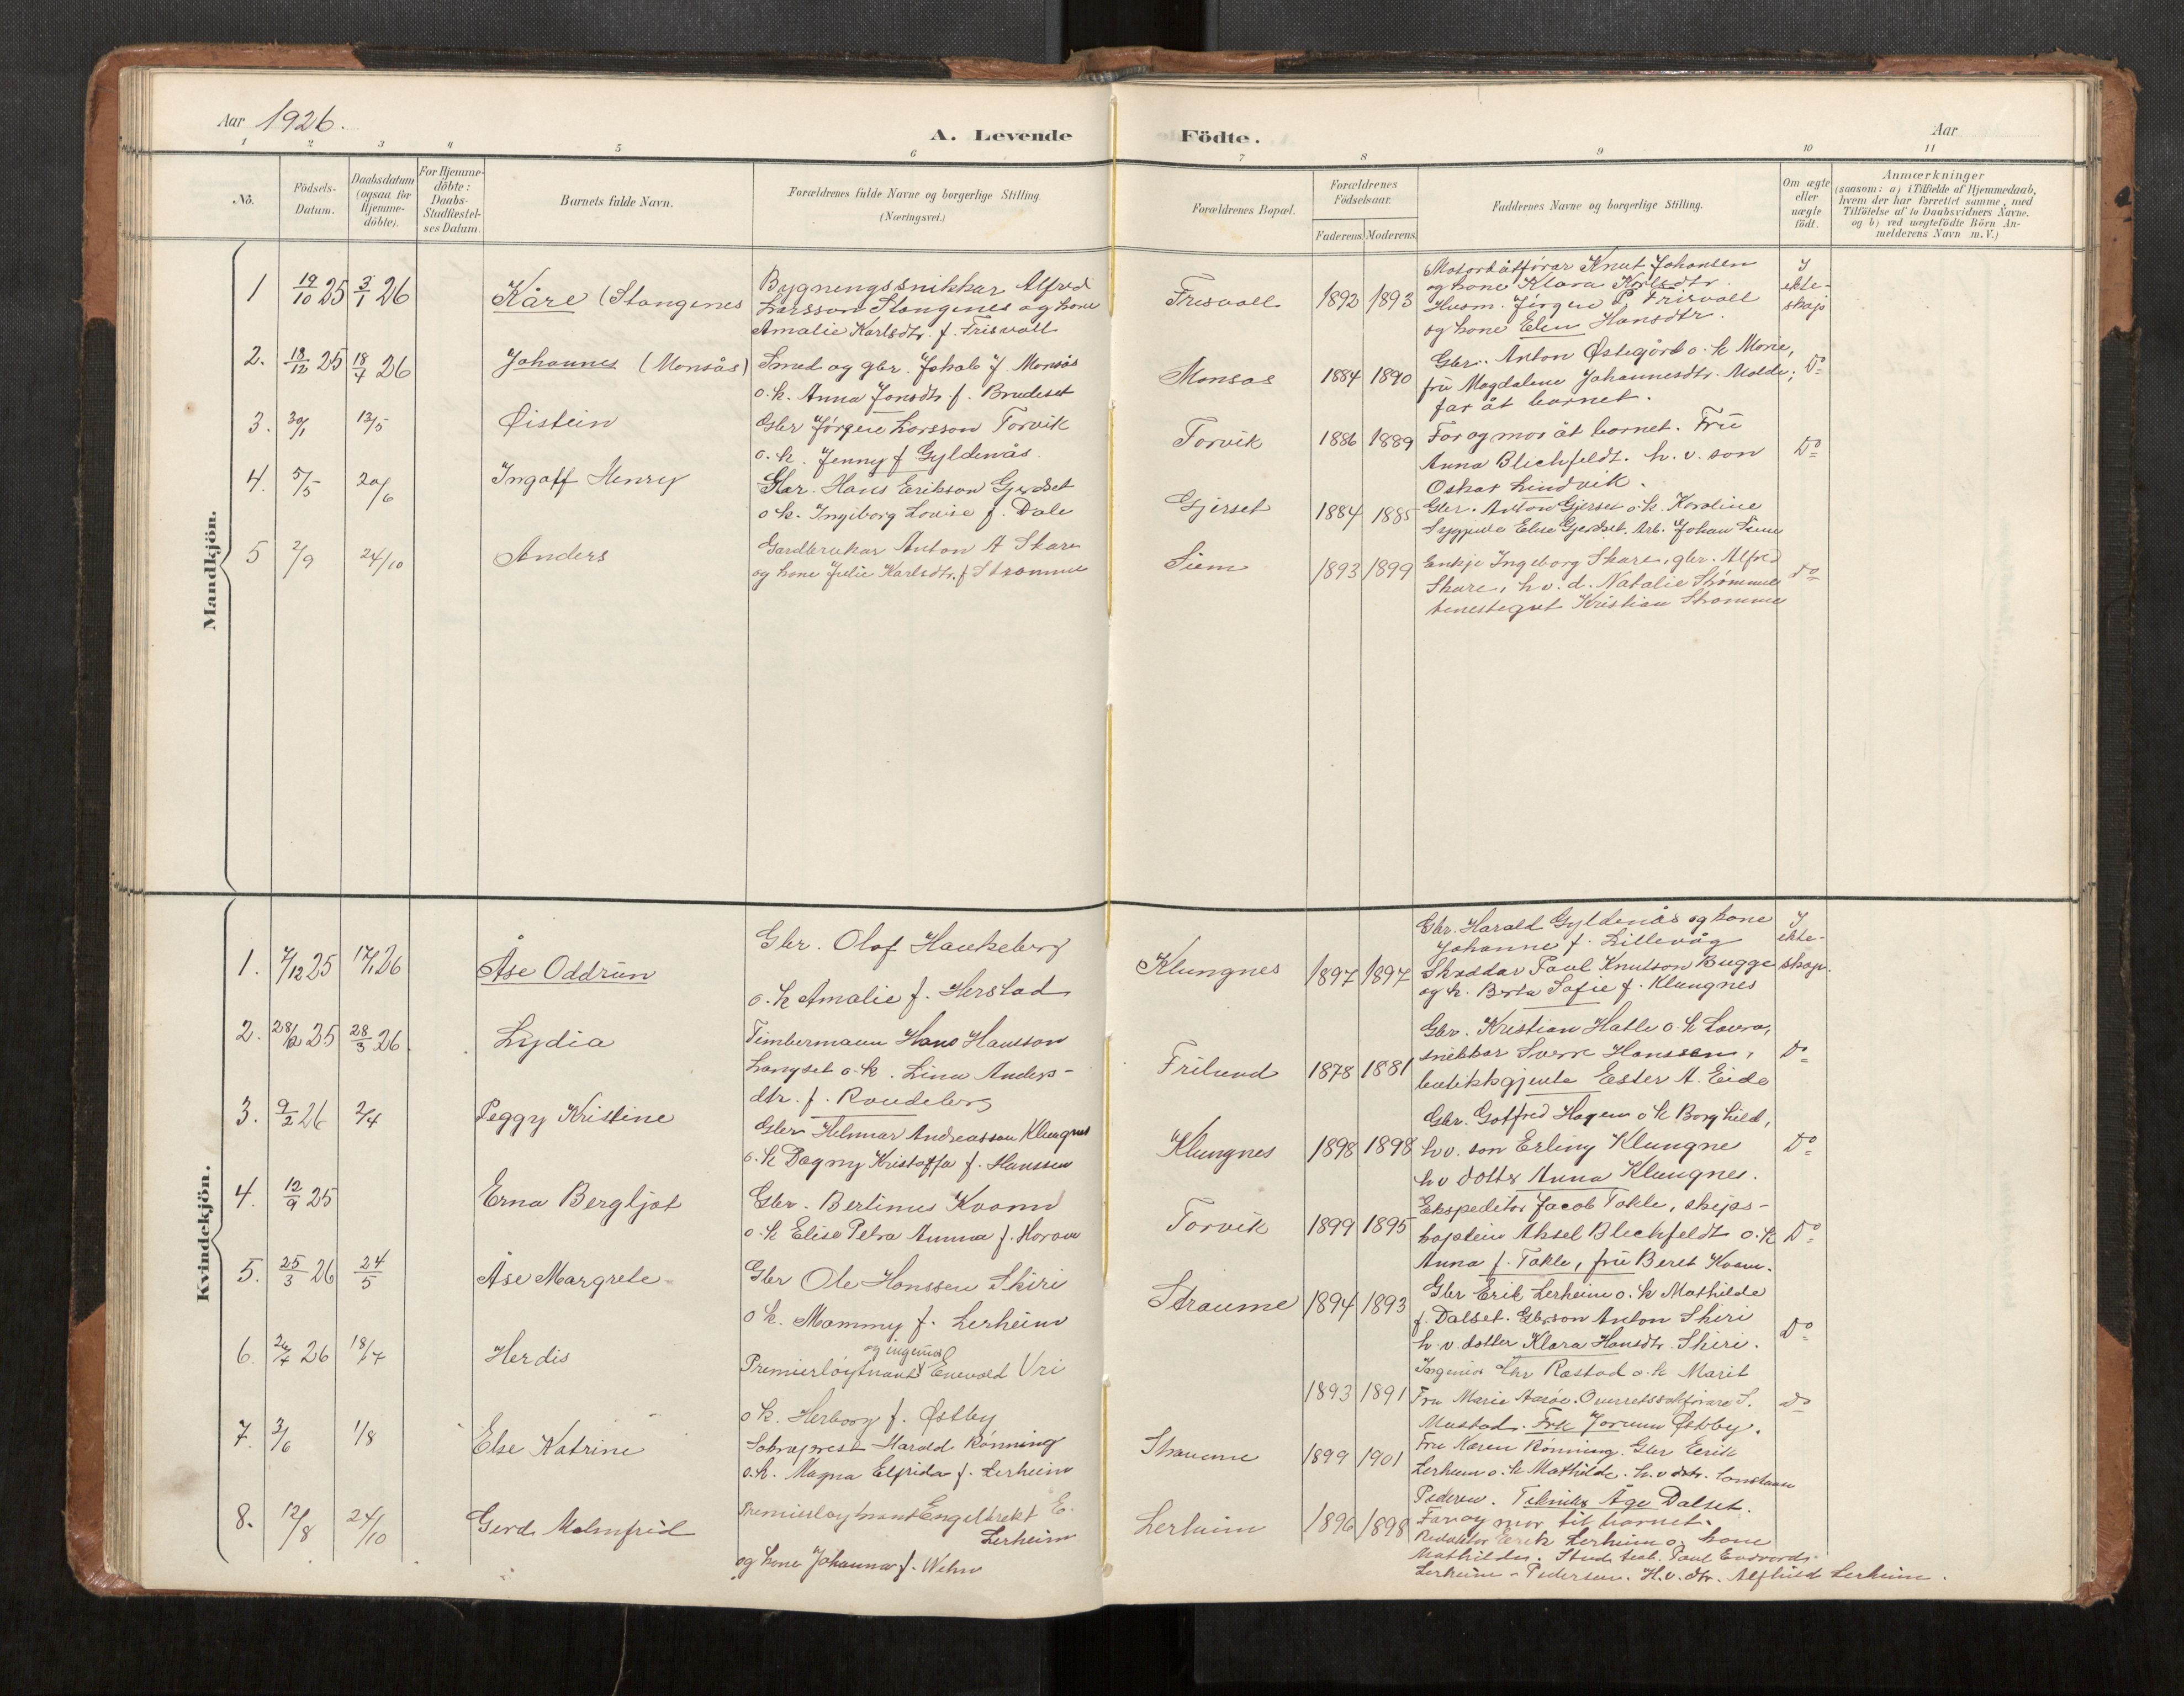 Aar 1926.
A. Levende Födte.
Aar
1 2 3 4 5 6 7 8 9 10 11
No.
Födsels-
Datum.
Daabsdatum
(ogsaa for
Hjemme-
döbte).
For Hjemme-
döbte:
Daabs-
Stadfæstel-
ses Datum.
Barnets fulde Navn.
Forældrenes fulde Navne og borgerlige Stilling.
(Næringsvei.)
Forældrenes Bopæl.
Forældrenes
Födselsaar.
Faderens. Moderens.
Faddernes Navne og borgerlige Stilling.
Om ægte
eller
uægte
födt.
Anmærkninger
(saasom: a) i Tilfælde af Hjemmedaab,
hvem der har forrettet samme, med
Tilföielse af to Daabsvidners Navne,
og b) ved uægtefödte Börn An-
melderens Navn m. V.)
Mandkjön.
1 19/10 25 3/1 26 Kåre (Stangenes
Bygningssnikkar Alfred
Larsson Stangenes og kone
Amalie Karlsdtr. f. Frisvoll
Frisvoll 1892 1893
Motorbåtförar Knut Johansen
og kone Klara Karlsdtr.
Husm. Jörgen P. Frisvoll
og kone Elen Hansdtr.
I
ekte-
skap
2. 18/12 25 18/4 26 Johannes (Monsås)
Smed og gbr. Jakob J. Monsås
o. k. Anna Jonsdtr. f. Brudeset
Monsås 1884 1890
Gbr. Anton Østigård o. k. Mone,
frü Magdalene Johannesdtr. Molde;
far åt barnet.
Do
3. 30/1 13/5 Øistein
Gbr Jörgen Larsson Torvik
o. k. Jenny f. Gyldenås.
Torvik 1886 1889
Far og mor åt barnet. Frü
Anna Blichfeldt. h. v. son
Oskar Lindvik.
Do
4. 5/5 20/6 Ingolf Henry
Gbr. Hans Erikson Gjerdset
o k. Ingiborg Lovise f. Dale
Gjerset 1884 1885
Gbr. Anton Gjerset o. k. Karoline
Sygjenta Elna Gjerdset. Arb. Johan
5 2/9 24/10 Anders
Gardbrukar Anton A Skare
og kone Julie Karlsdtr. f. Strømme
Siem 1893 1899
Enkje Ingeborg Skare, gbr. Alfred
Skare, h. v. d. Natalie Strømme
tenestegut Kristian Strømme
do
Kvindekjön.
1. 7/12 25 17/1 26 Åse Oddrün
Gbr. Olaf Haukeberg
o. k Amalie f. Herstad
Klungnes 1897 1897
Gbr. Harald Gyldenås og kone
Johanne f. Lillevåg
Skreddar Paul Knutson Bugge
og k. Berta Sofie f. Klungnes
I
ekte-
skap.
2. 28/12 25 28/3 26. Lydia
Timbermann Hans Hansson
Langset o. k. Lina Anders-
dtr. f. Roudeberg
Frilund 1878 1881
Gbr. Kristian Hatle o. k Lovra,
snikkar Sverre Hanssen,
butikkgjenta Ester A. Eide
Do
3. 9/2 26 2/4 Peggy Kristine
Gbr Helmar Andreasson Klungnes
o. k Dagny Kristoffa f. Hanssen
Klungnes 1898 1898
Gbr. Gotfred Hagen o k Borghild,
h v. son Erling Klungne
h v dotter Anna Klungnes.
Do
4. 12/9 25 Erna Bergljot
Gbr. Bertinus Kvam
o. k Elise Petra Amma f. Horom
Torvik 1899 1895
Ekspeditör Jacob Takle, skips-
kaptein Aksel Blichfeldt o. k
Anna f. Takle, frü Beret Kvam.
Do
5. 25/3 26 24/5 Åse Margrete
Gbr Ole Hanssen Skiri
o k. Mammy f. Lerheim
Straume 1894 1893
Gbr Erik Lerheim o. k Mathilde
f. Dalset. Gbrson Anton Skiri
h. v. dotter Klara Hansdtr. Skiri.
Do
6. 26 18/7 Herdis
og ingeniør
Premierløytnant Enevold Vri
o k. Herborg f. Østby
1893 1891
Ingeniør Chr Rastad o. k Marit
Fru Marie Aarøe. Overretssakförare S.
Mustad. Frk Jorunn Østby.
do
7. 3/6 1/8 Else Katrine
Soknaprest Harald Rönning
o. k. Magna Elfrida f. Lerheim
Straume 1899 1901
Fru Karen Rönning. Gbr Eerik
Lerheim o. k Mathilde. h. v dtr. Constanse
Pedersen. Tekniker Åge Dalset.
8. 12/8 24/10 Gerd Malmfrid
Premierløytnant Engelbrekt E.
Lerheim
og kone Johanna f. Wehn
Lerheim 1896 1898
Far og mor til barnet.
Redaktör Eerik Lerheim og kone
Mathilde. Stud. real. Paul Endvard
Lerheim - Pedersen. H. v. dtr. Alfhild Lerheim.